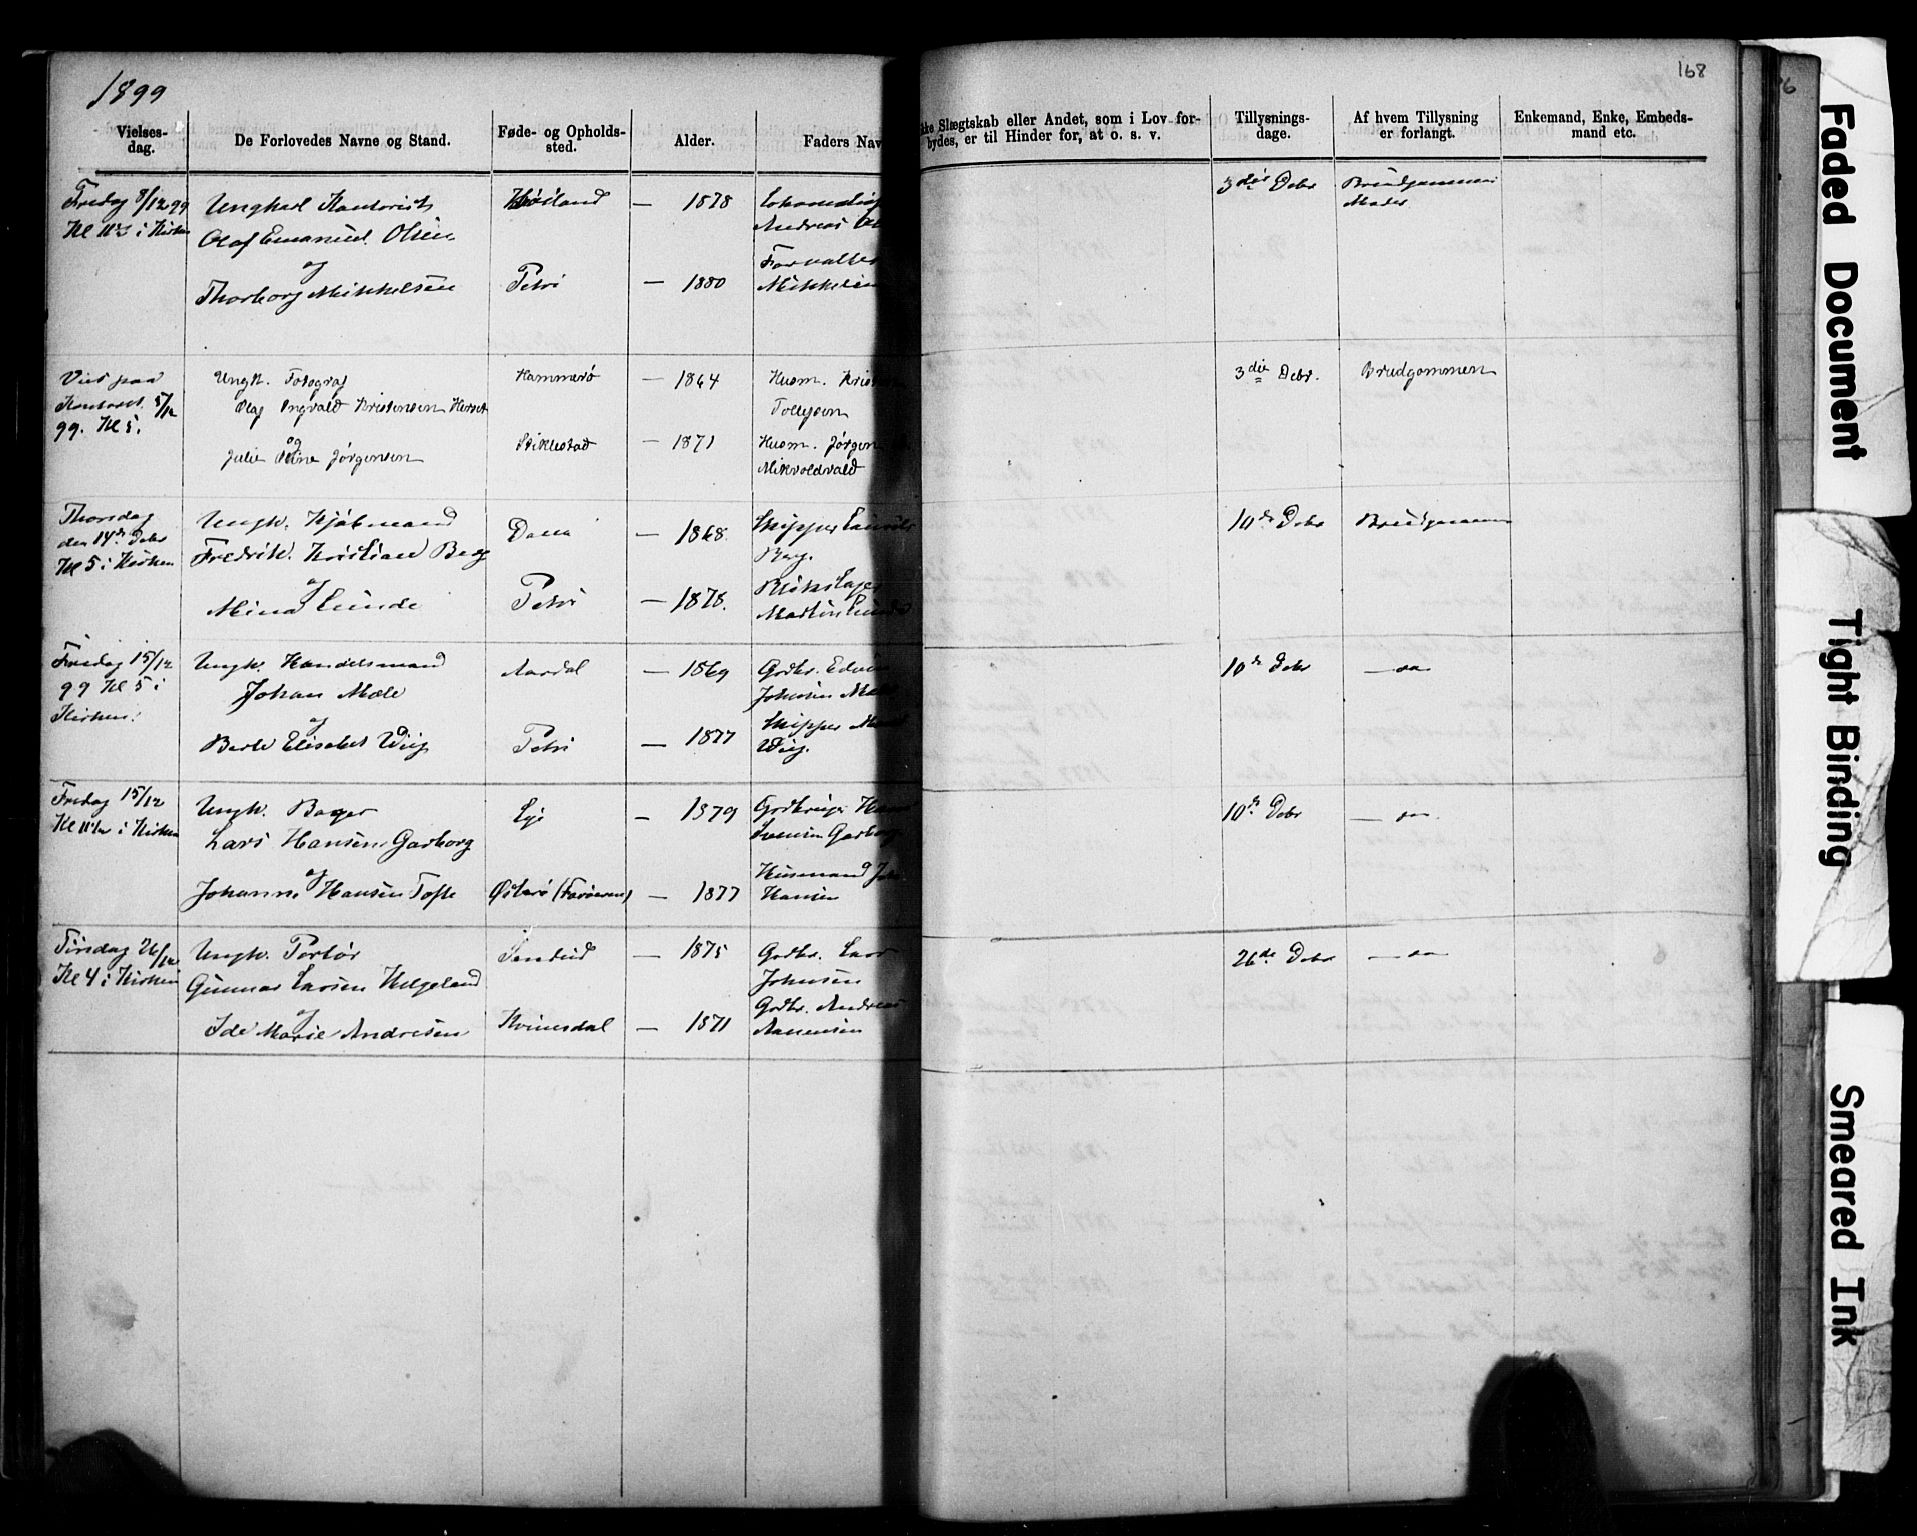 1899
168
Vielses-
dag.
De Forlovedes Navne og Stand.
Føde- og Opholds-
sted.
Alder.
Faders Nav
Slægtskab eller Andet, som i Lov for-
bydes, er til Hinder for, at o. s. v.
Tillysnings-
dage.
Af hvem Tillysning
er forlangt.
Enkemand, Enke, Embeds-
mand etc.
Fredag 8/12 99
Kl i Kirken
Ungkarl Kontorist
Olaf Emanuel Olsen
og
Thorborg Mikkelsen
Høiland — 1878
Petri — 1880
Andreas
Forvalter
Mikkelsen
3die Debr
Brudgommens
Moder
Viet paa
Kontoret 5/12
99. Kl 5.
Ungk. Fotograf
Olaf Ingvald Kristensen
og
Julie Stine Jørgensen
Hammerø — 1864
Stiklestad — 1871
Husm. Kristen
Tollefsen
Husm. Jørgen
Mikvoldvald
3die Debr.
Brudgommen
Thorsdag
den 14de Debr
Kl 5 i Kirken
Ungk. Kjøbmand
Fredrik Kristian Berg
og
Mina Lunde
— 1868.
Petri — 1878.
Skipper
Berg.
Martin Lunde
10de Debr
Brudgommen
Fredag 15/12
99 Kl 5 i
Kirken.
Ungk. Handelsmand
Johan Mæle
og
Berte Elisabet Wiig
Aardal — 1869
Petri — 1877
Gdbr. Edvin
Johnsen
Skipper
Wiig.
10de Debr
— „ —
Fredag 15/12
Kl i Kirken
Ungk. Bager
Lars Hansen Garborg
og
Johanne Hansen Tofte
Lye — 1879
Østerø (Færøerne) — 1877
Gdbruger Hans
Garborg
Husmand
Hansen
10de Debr
— „ —
Tirsdag 26/12
Kl 4 i Kirken
Ungk.
Gunnar Larsen Helgeland
og
Ide Marie Andresen
— 1875
Kvinesdal — 1871
Gdbr. Lars
Johnsen
Gdbr. Andreas
Aanensen
26de Debr
— „ —
Faded Document
Tight Binding
Smeared Ink